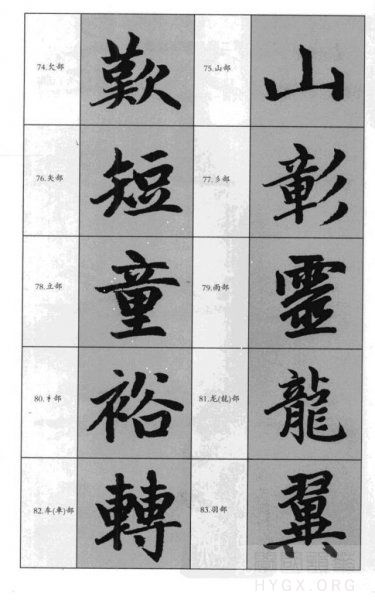 74.欠部 歎 75.山部 山
76.矢部 短 77.彡部 彰
78.立部 童 79.雨部 靈
80.衤部 裕 81.龙(龍)部 龍
82.车(車)部 轉 83.羽部 翼
HYGX.ORG